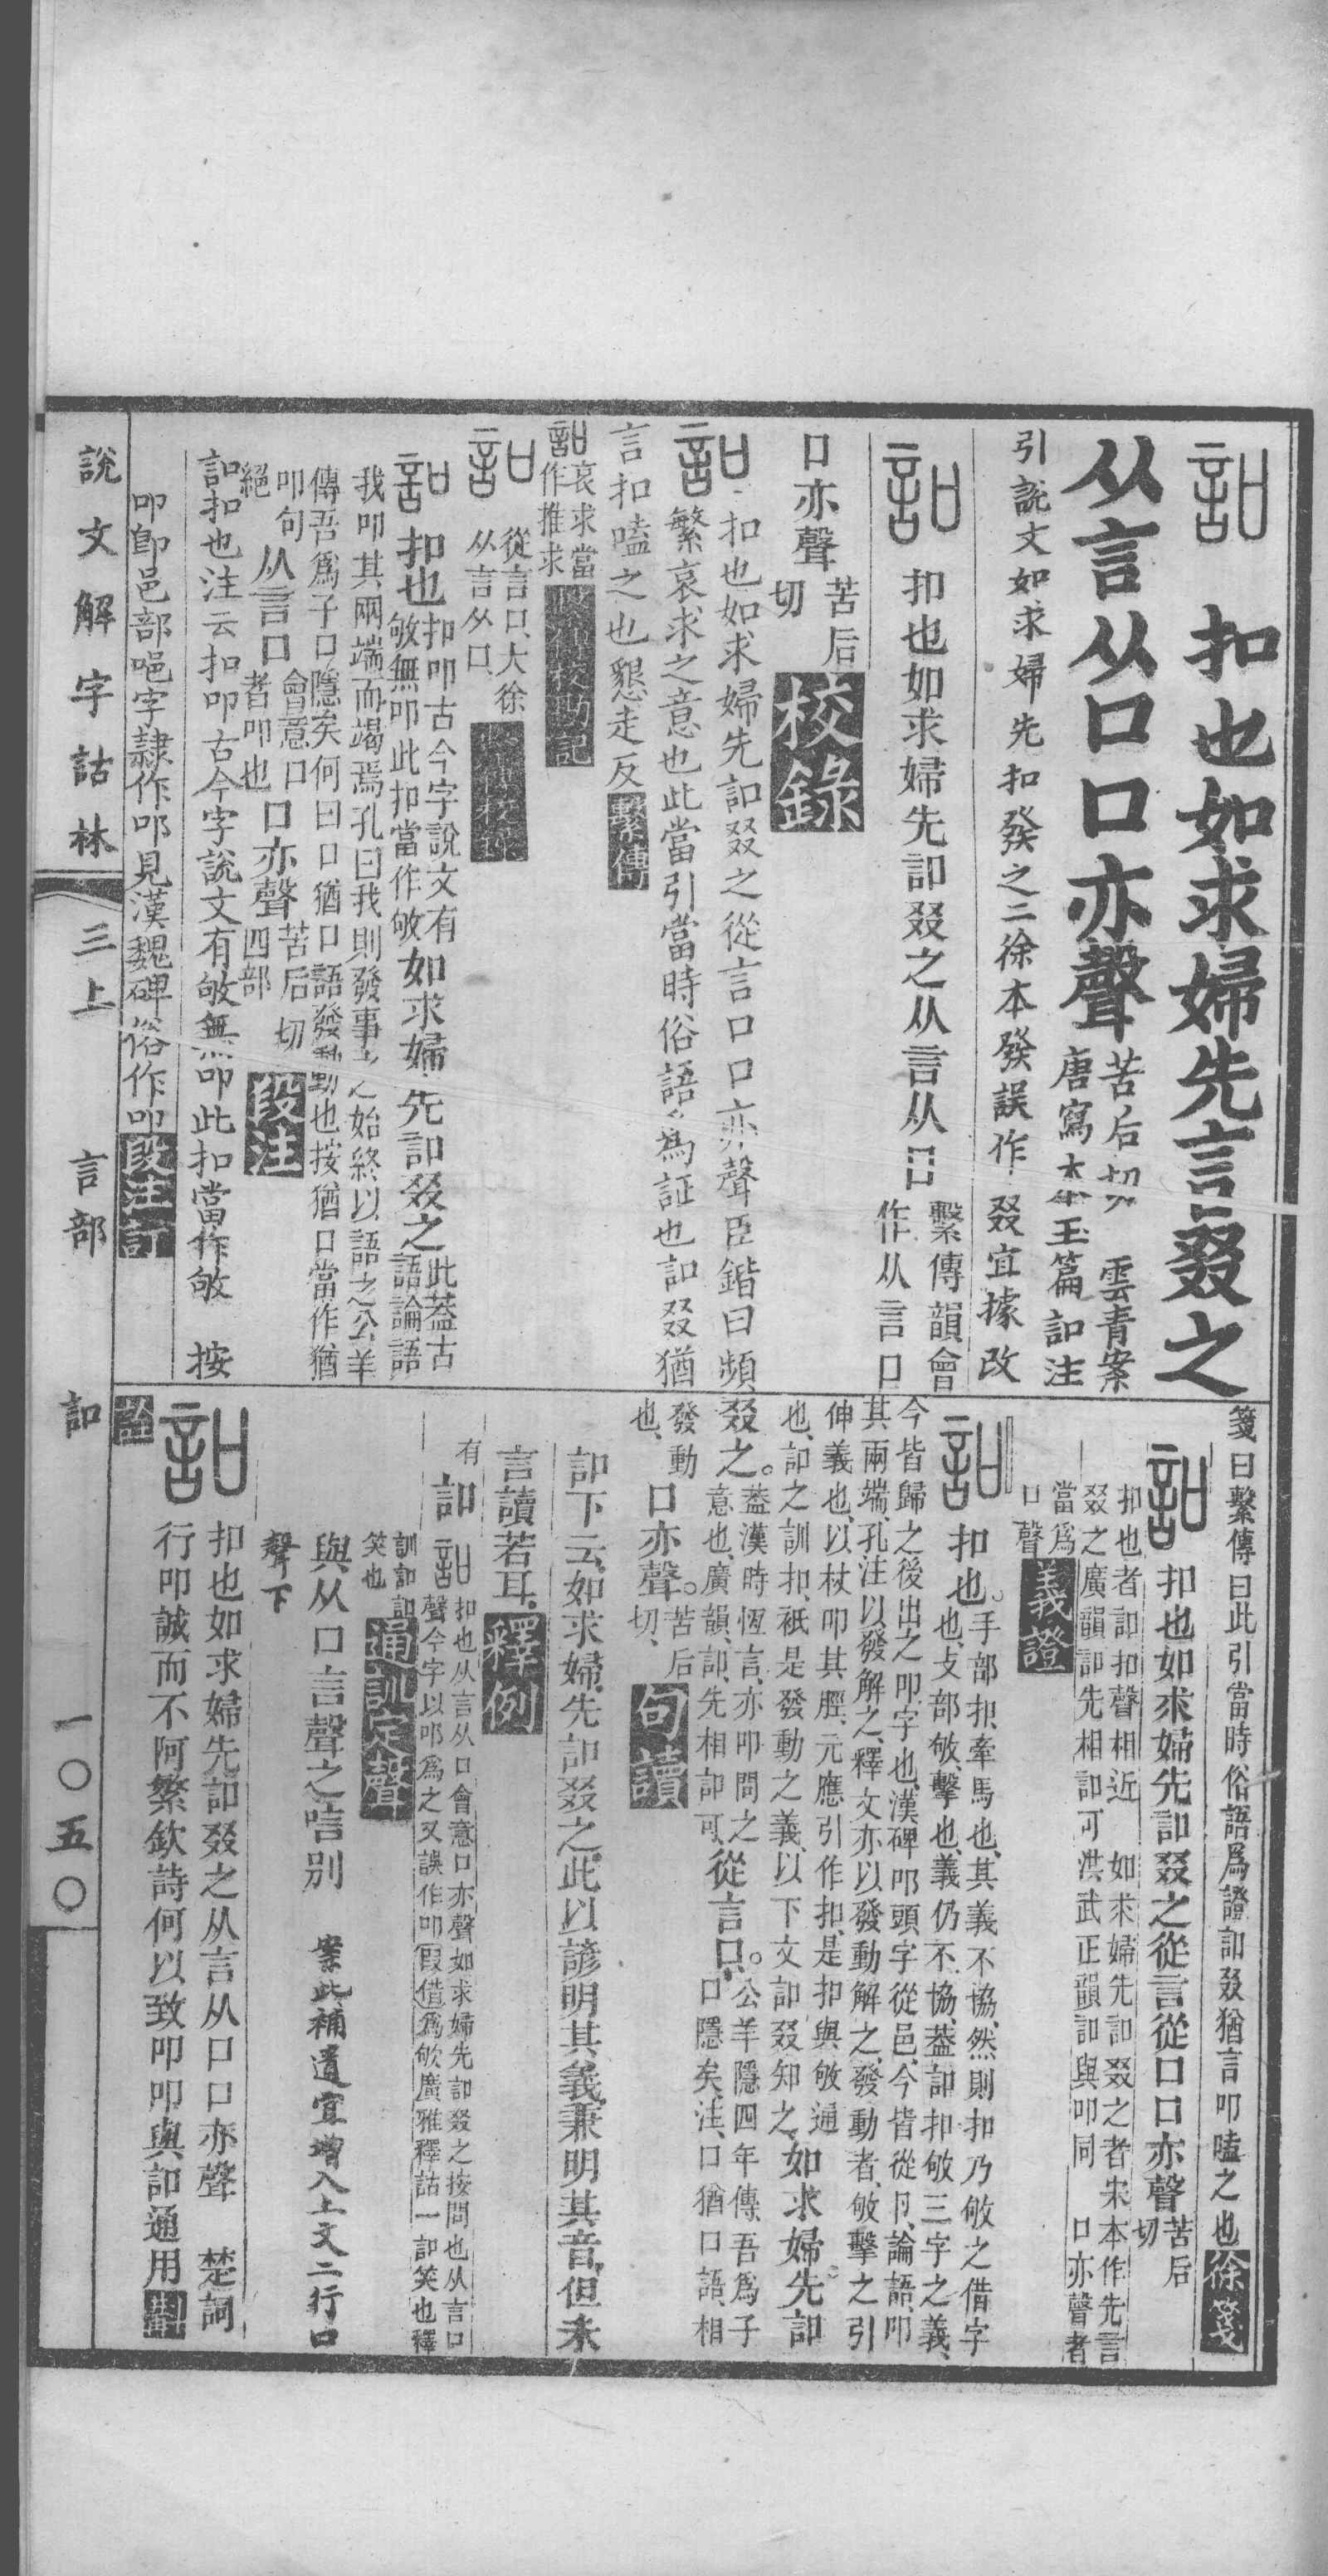 扣也如求婦先訁口叕之
从言从口口亦聲苦后切 雲青案唐寫本玉篇訆注
引說文如求婦先扣發之二徐本發誤作叕宜據改
扣也如求婦先訆叕之从言从口繫傳韻會作从言口
口亦聲苦后切 校錄
扣也如求婦先訆叕之從言口口亦聲臣鍇曰頻
繁哀求之意也此當引當時俗語為証也訆叕猶
言扣嗑之也懇走反 繫傳
哀求當作推求
從言口大徐从言从口
扣也扣叩古今字說文有敂無叩此扣當作敂如求婦先訆叕之此葢古語論語
我叩其兩端而竭焉孔曰我則發事之始終以語之公羊
傳吾爲子口隱矣何曰口猶口語發動也按猶口當作猶
叩句絕从言口會意口者叩也口亦聲苦后切四部 段注
訆扣也注云扣叩古今字說文有敂無叩此扣當作敂 按
叩卽邑部邼字隷作叩見漢魏碑俗作叩 段注訂
箋曰繫傳曰此引當時俗語爲證訆叕猶言叩嗑之也 徐箋
扣也如求婦先訆叕之從言從口口亦聲苦后切
扣也者訆扣聲相近 如求婦先訆叕之者宋本作先言
叕之廣韻訆先相訆可洪武正韻訆與叩同 口亦聲者
當爲口聲 義證
扣也手部扣牽馬也其義不協然則扣乃敂之借字
也攴部敂擊也義仍不協葢訆扣敂三字之義
今皆歸之後出之叩字也漢碑叩頭字從邑今皆從卪論語叩
其兩端孔注以發解之釋文亦以發動解之發動者敂擊之引
伸義也以杖叩其脛元應引作扣是扣與敂通
也訆之訓扣衹是發動之義以下文訆叕知之如求婦先訆
叕之葢漢時恆言亦叩問之意也廣韻訆先相訆可從言口公羊隱四年傳吾為子口隱矣注口猶口語相
發動也口亦聲苦后切 句讀
訆下云如求婦先訆叕之此以諺明其義兼明其音但未
言讀若耳 釋例
有訆扣也从言从口會意口亦聲如求婦先訆叕之按問也从言口
聲今字以叩爲之又誤作叩假借爲敂廣雅釋詁一訆笑也釋
訓訆訆笑也 通訓定聲
與从口言聲之唁別 案此補遺宜增入上文二行口
聲下
扣也如求婦先訆叕之从言从口口亦聲 楚詞
行叩誠而不阿繁欽詩何以致叩叩與訆通用
說文解字詁林 三上 言部 訆 一〇五〇